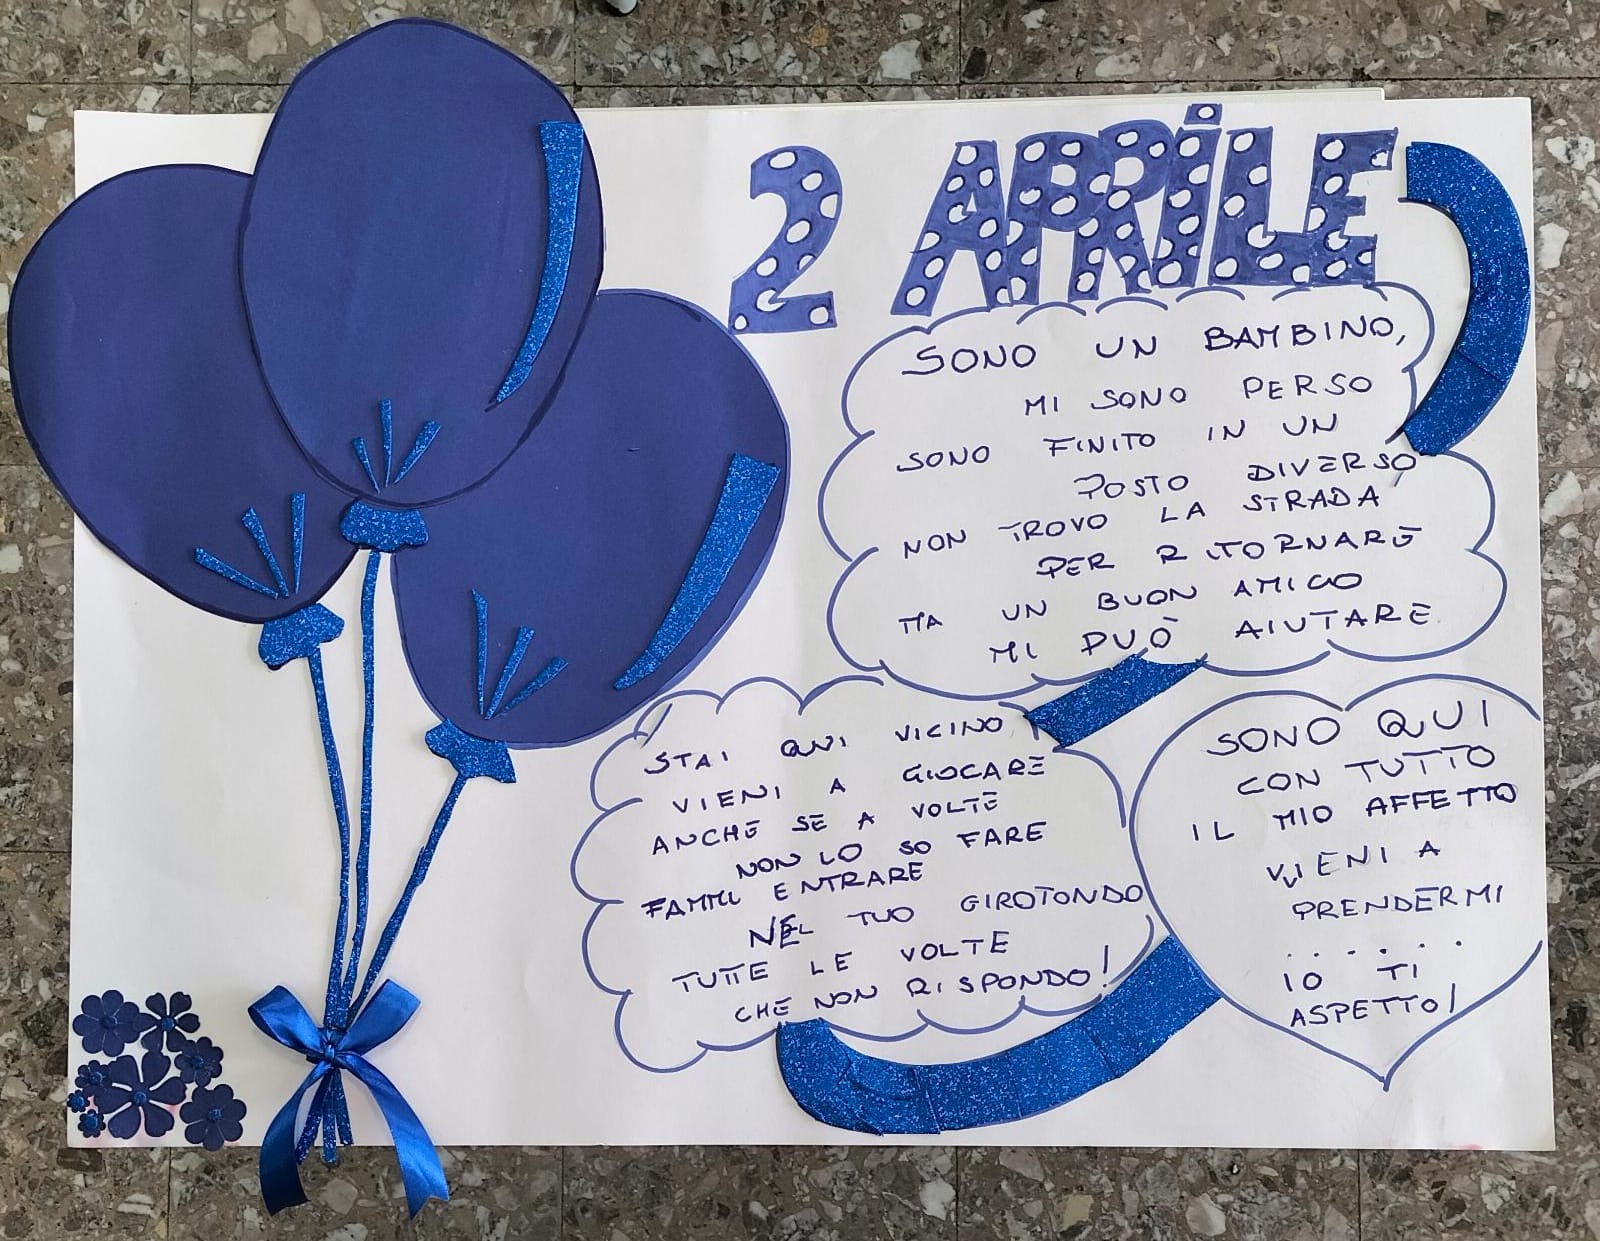 2 APRILE
SONO UN BAMBINO,
MI SONO PERSO
SONO FINITO IN UN
POSTO DIVERSO
NON TROVO LA STRADA
PER RITORNARE
MA UN BUON AMICO
MI PUÒ AIUTARE.
STAI QUI VICINO
VIENI A GIOCARE
ANCHE SE A VOLTE
NON LO SO FARE
FAMMI ENTRARE
NEL TUO GIROTONDO
TUTTE LE VOLTE
CHE NON RISPONDO!
SONO QUI
CON TUTTO
IL MIO AFFETTO
VIENI A
PRENDERMI
. . . . . .
IO TI
ASPETTO!